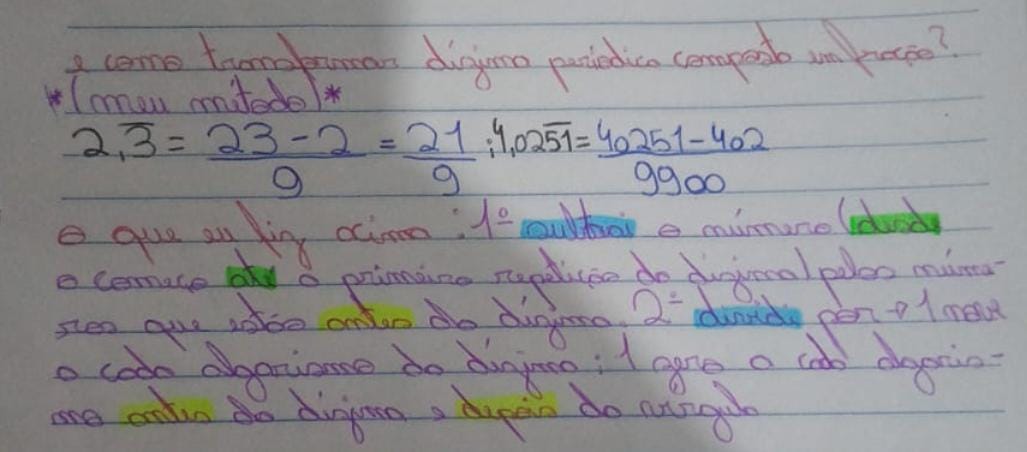 e como transformar dízima periódica composta em fração?
*(meu método)*
2,3̅ = 23-2/9 = 21/9 ; 4,025̅1̅ = 40251-402/9900
o que eu fiz acima: 1º subtrai o número (desde
o começo até a primeira repetição da dízima) pelos núme-
ros que estão antes da dízima. 2º divide por → 1 nove
a cada algarismo da dízima; 1 zero a cada algaris-
mo antes da dízima e depois da vírgula